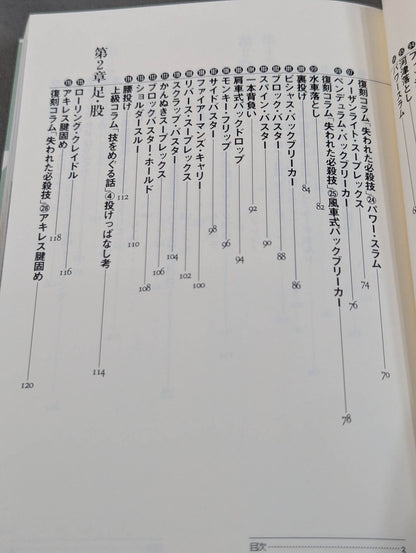 河津落とし
復刻コラム「失われた必殺技」㉔パワー・スラム 70
ノーザンライト・スープレックス 74
ペンデュラム・バックブリーカー 76
復刻コラム「失われた必殺技」㉕風車式バックブリーカー 78
水車落とし 82
裏投げ 84
ビシャス・バックブリーカー 86
ブロック・バスター 88
スパイン・バスター 90
一本背負い 92
肩車式バックドロップ 94
モンキー・フリップ 96
サイドバスター 98
ファイアーマンズ・キャリー 100
リバース・スープレックス 102
スクラップ・バスター 104
かんぬきスープレックス 106
ブロックバスター・ホールド 108
ショルダースルー 110
腰投げ 112
上級コラム「技をめぐる話」④投げっぱなし考 114
第2章 足・股
ローリング・クレイドル 116
アキレス腱固め 118
復刻コラム「失われた必殺技」㉖アキレス腱固め 120
目次 3